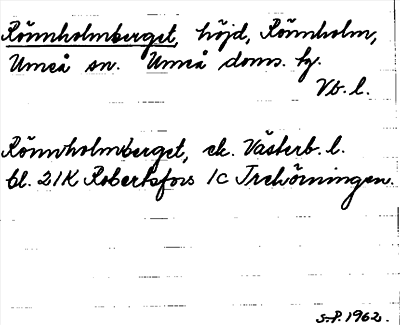 Rönnholmberget, höjd, Rönnholm,
Umeå sn. Umeå doms. hg.
Vb. l.
Rönnholmberget, ek. Västerb. l.
bl. 21K Robertsfors 1c Trehörningen.
S.P. 1962.